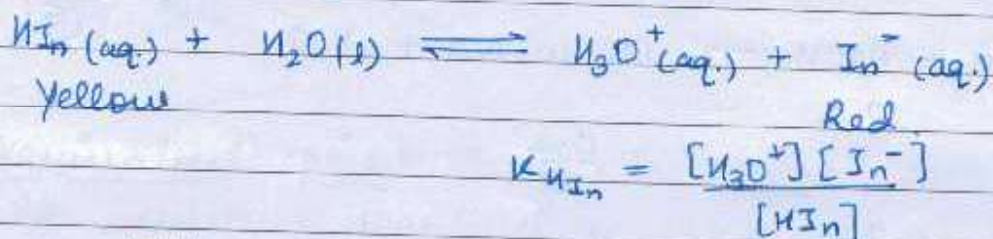 HIn (aq.) + H₂O(l) ⇌ H₃O⁺(aq.) + In⁻ (aq.)
Yellow Red
K_HIn = [H₃O⁺] [In⁻] / [HIn]